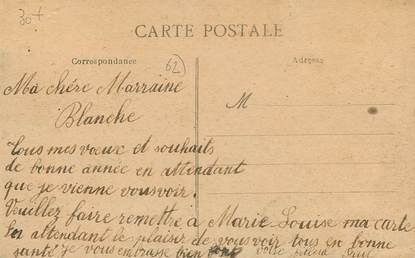 30 f
CARTE POSTALE
Correspondance
62
Adresse
Ma chére Marraine
Blanche
M
Tous mes vœux et souhaits
de bonne année en attendant
que je vienne vousvoir.
Veuillez faire remettre à Marie Louise ma carte
En attendant le plaisir de vousvoir tous en bonne
santé je vous embrasse bien fort votre